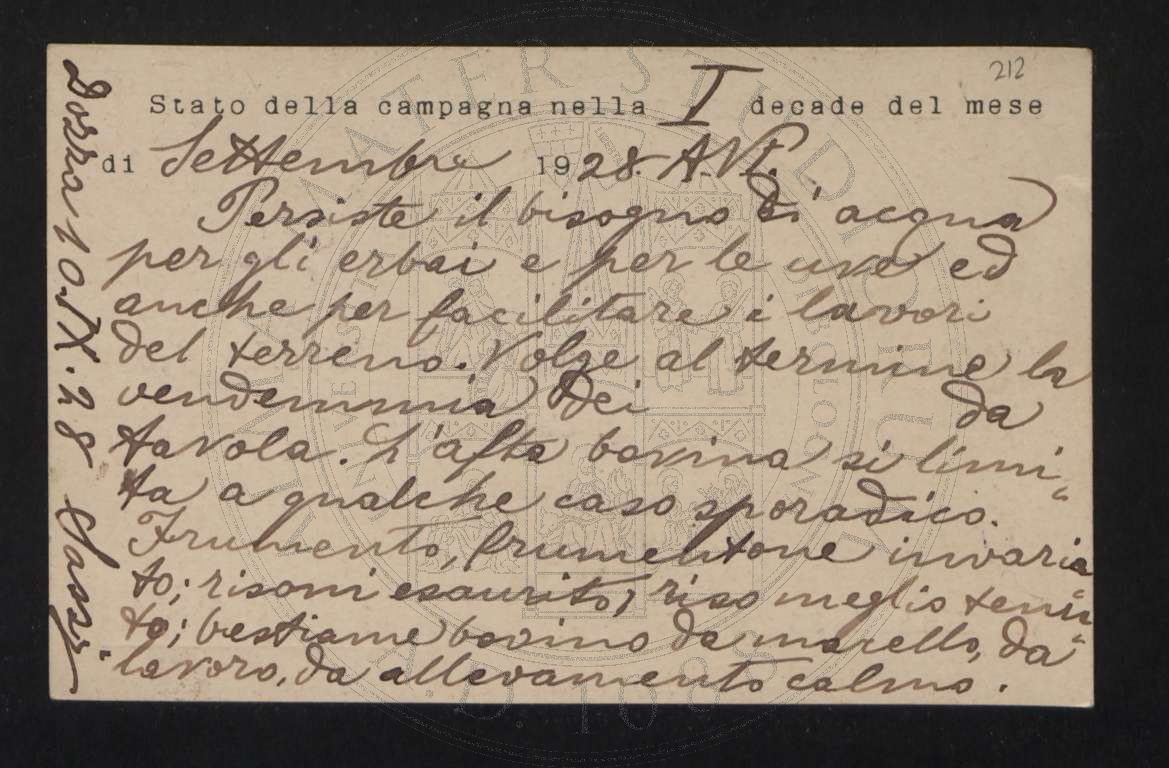 212
Stato della campagna nella I decade del mese
di Settembre 1928. A. VI.
Persiste il bisogno di acqua
per gli erbai e per le uve ed
anche per facilitare i lavori
del terreno. Volge al termine la
vendemmia dei da
tavola. L'afta bovina si limi-
ta a qualche caso sporadico.
Frumento, frumentone invaria-
to; risoni esaurito; riso meglio tenu-
to; bestiame bovino da macello, da
lavoro, da allevamento calmo.
10.IX.28 Sassi
ALMA MATER STUDIORUM
A.D. 1088